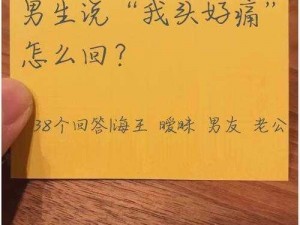 男生说“我头好痛”
怎么回？
38个回答|海王 暧昧 男友 老公